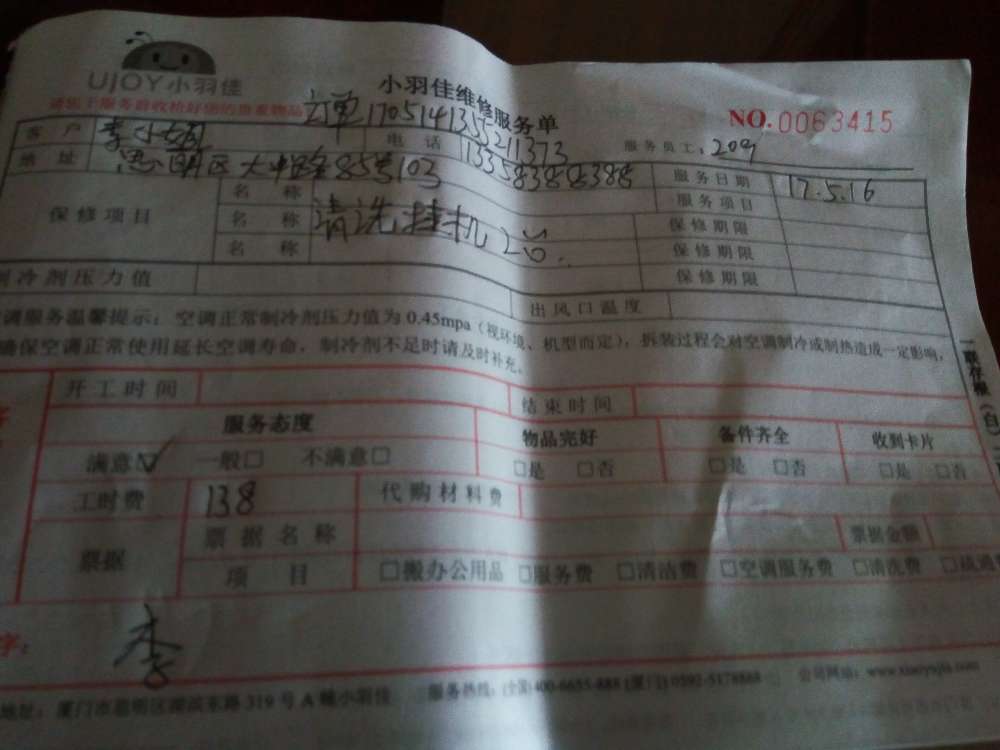 UJOY小羽佳
小羽佳维修服务单
请您于服务前收检好您的贵重物品
订单1705141355211373
NO.0063415
服务员工:209
客户
电话
地址
思明区大中路85号103
服务日期
17.5.16
服务项目
保修项目
名称
名称
请洗挂机2台.
名称
保修期限
保修期限
保修期限
制冷剂压力值
出风口温度
空调服务温馨提示:空调正常制冷剂压力值为0.45mpa(视环境、机型而定),拆装过程会对空调制冷或制热造成一定影响,
确保空调正常使用延长空调寿命,制冷剂不足时请及时补充。
一联存根(白)
开工时间
结束时间
服务态度
物品完好
备件齐全
收到卡片
满意☑ 一般□ 不满意□
□是 □否
□是 □否
□是 □否
工时费
138
代购材料费
票据
票据名称
票据金额
项目
□搬办公用品 □服务费 □清洁费 □空调服务费 □清洗费 □疏通
字:
李
地址:厦门市思明区湖滨东路319号A幢小羽佳
服务热线:(全国)400-6655-888(厦门)0592-5178888
公司网站:www.xiaoyujia.com